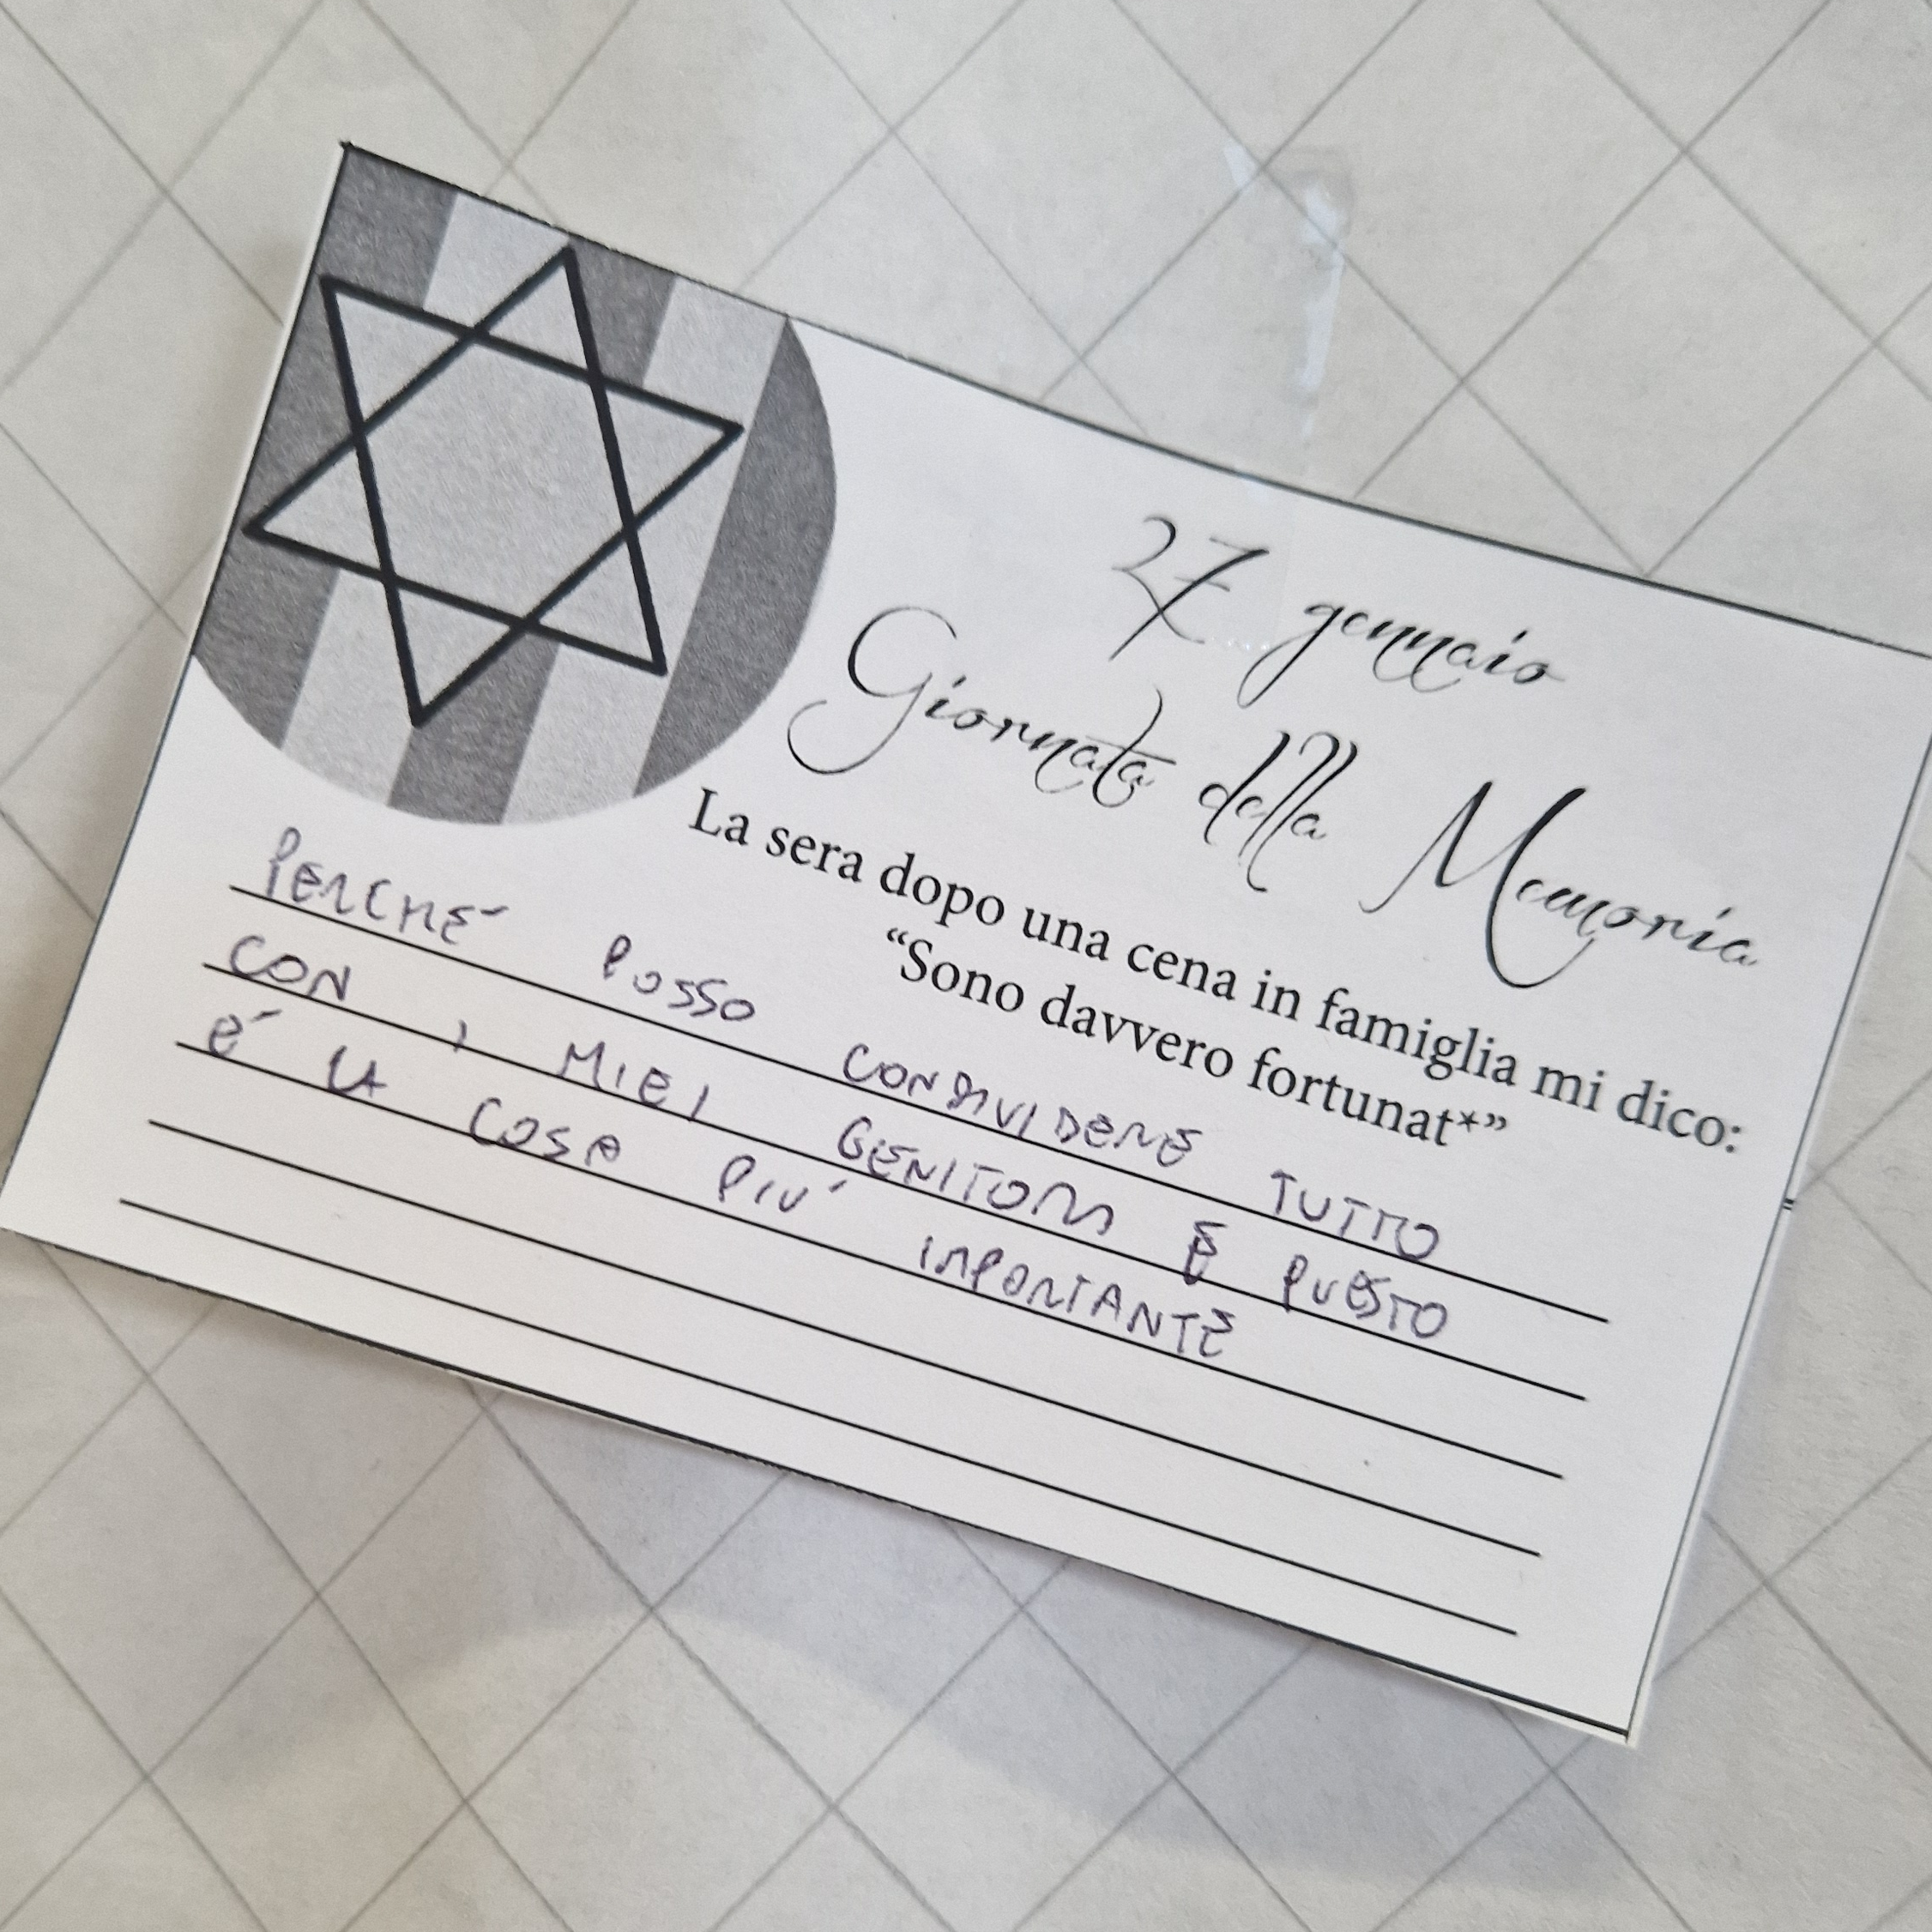 27 gennaio
Giornata della Memoria
La sera dopo una cena in famiglia mi dico:
“Sono davvero fortunat*”
PERCHÉ POSSO CONDIVIDERE TUTTO
CON I MIEI GENITORI E QUESTO
É LA COSA PIÚ IMPORTANTE